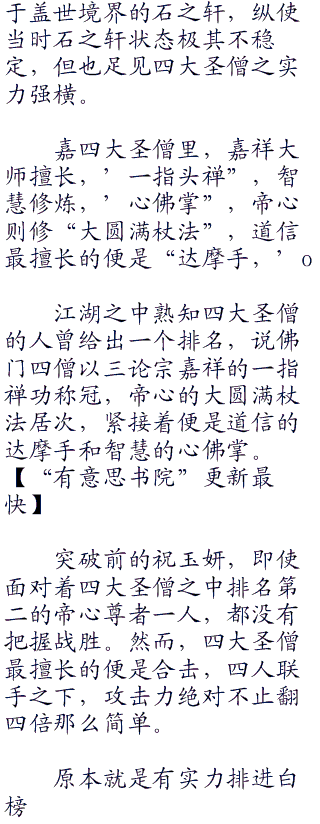 于盖世境界的石之轩，纵使
当时石之轩状态极其不稳
定，但也足见四大圣僧之实
力强横。
嘉四大圣僧里，嘉祥大
师擅长，’一指头禅”，智
慧修炼，’心佛掌”，帝心
则修“大圆满杖法”，道信
最擅长的便是“达摩手，’o
江湖之中熟知四大圣僧
的人曾给出一个排名，说佛
门四僧以三论宗嘉祥的一指
禅功称冠，帝心的大圆满杖
法居次，紧接着便是道信的
达摩手和智慧的心佛掌。
【“有意思书院”更新最
快】
突破前的祝玉妍，即使
面对着四大圣僧之中排名第
二的帝心尊者一人，都没有
把握战胜。然而，四大圣僧
最擅长的便是合击，四人联
手之下，攻击力绝对不止翻
四倍那么简单。
原本就是有实力排进白
榜